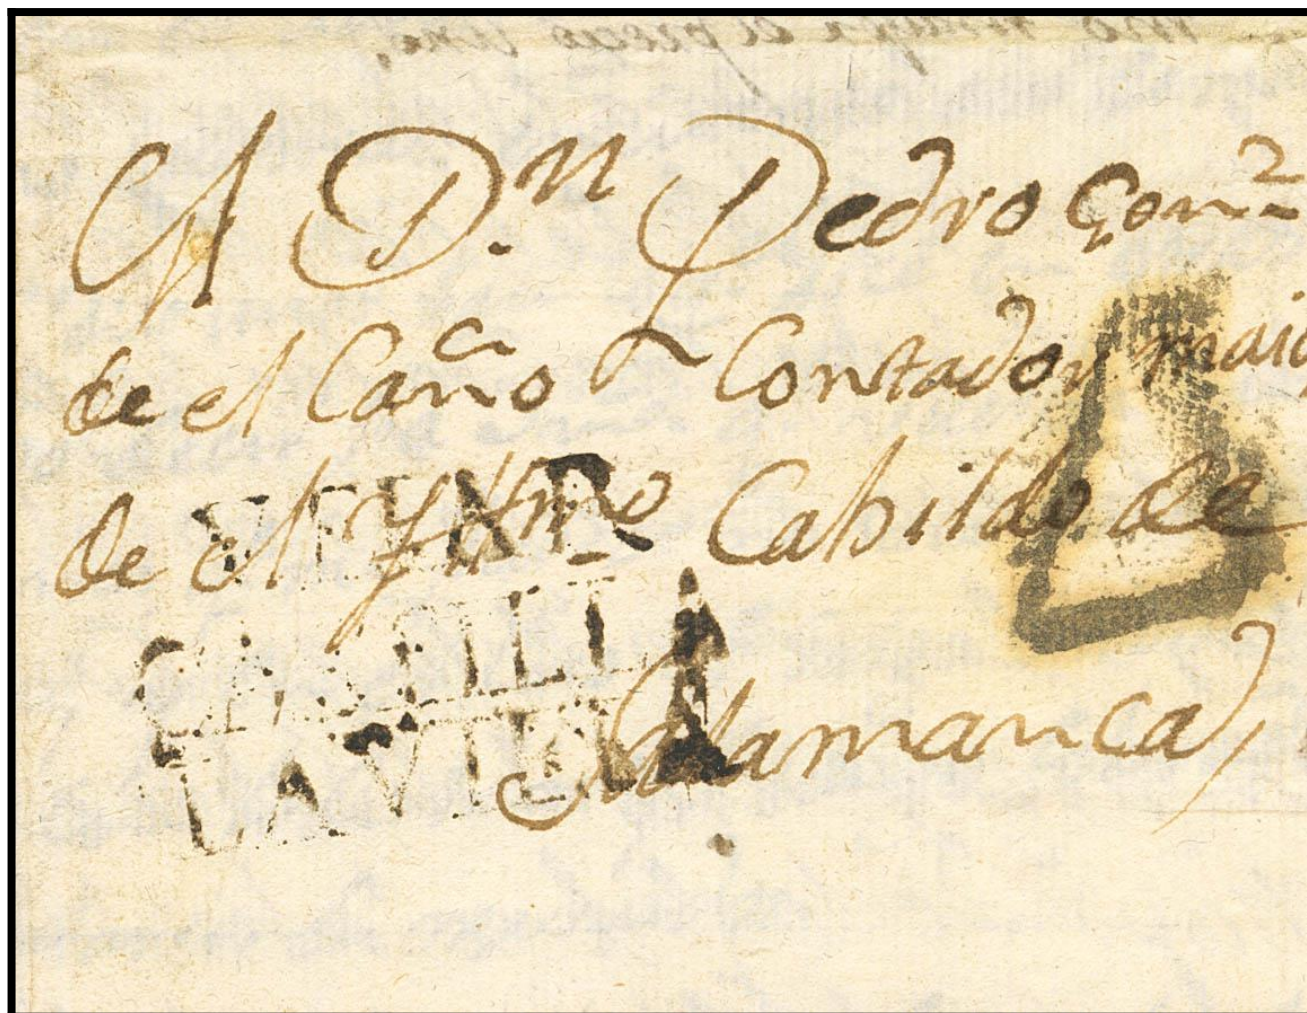 A D.ⁿ Pedro Gonᶻ
de el Caño Contador maio
de el Yttmo Cabildo de
Salamanca,
BEJAR
CASTILL
LAVIEJA